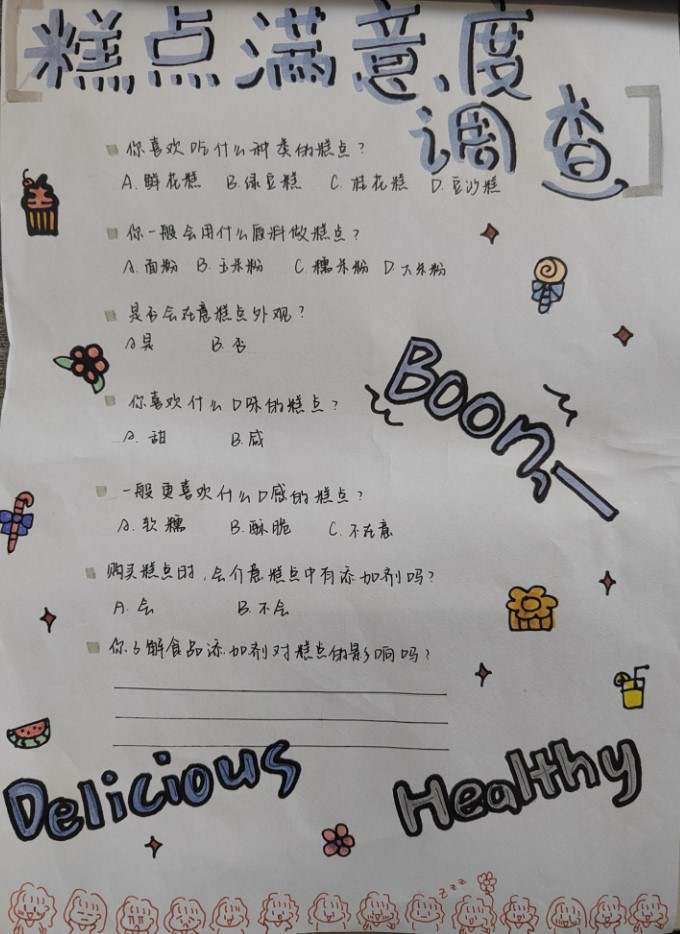 糕点满意度
调查
你喜欢吃什么种类的糕点?
A. 鲜花糕 B. 绿豆糕 C. 桂花糕 D. 豆沙糕
你一般会用什么原料做糕点?
A. 面粉 B. 玉米粉 C. 糯米粉 D. 大米粉
是否会在意糕点外观?
A 是 B. 否
你喜欢什么口味的糕点?
A. 甜 B. 咸
Boon,
一般更喜欢什么口感的糕点?
A. 软糯 B. 酥脆 C. 不在意
购买糕点时,会介意糕点中有添加剂吗?
A. 会 B. 不会
你了解食品添加剂对糕点的影响吗?
Delicious
Healthy
zzz